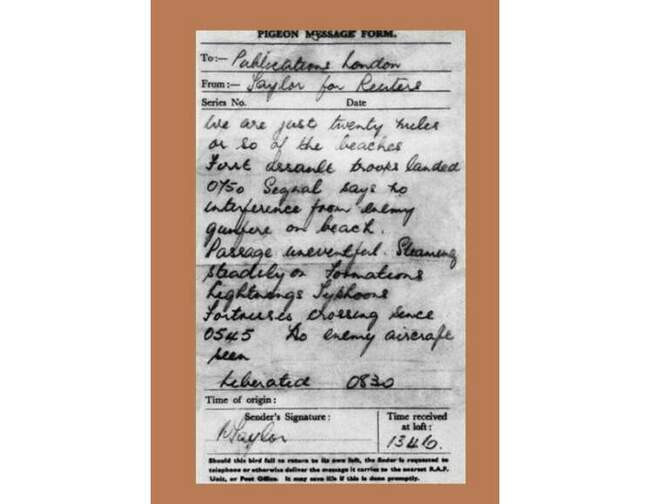 PIGEON MESSAGE FORM.
To:— Publications London
From:— Taylor for Reuters
Series No. Date
We are just twenty miles
or so of the beaches
First assault troops landed
0750 Signal says no
interference from enemy
gunfire on beach.
Passage uneventful. Steaming
steadily on Formations
Lightnings Typhoons
Fortresses crossing since
0545 No enemy aircraft
seen
Liberated 0830
Time of origin:
Sender's Signature: Time received at loft:
Taylor 1346.
Should this bird fail to return to its own loft, the finder is requested to
telephone or otherwise deliver the message it carries to the nearest R.A.F.
Unit, or Post Office. It may save life if this is done promptly.